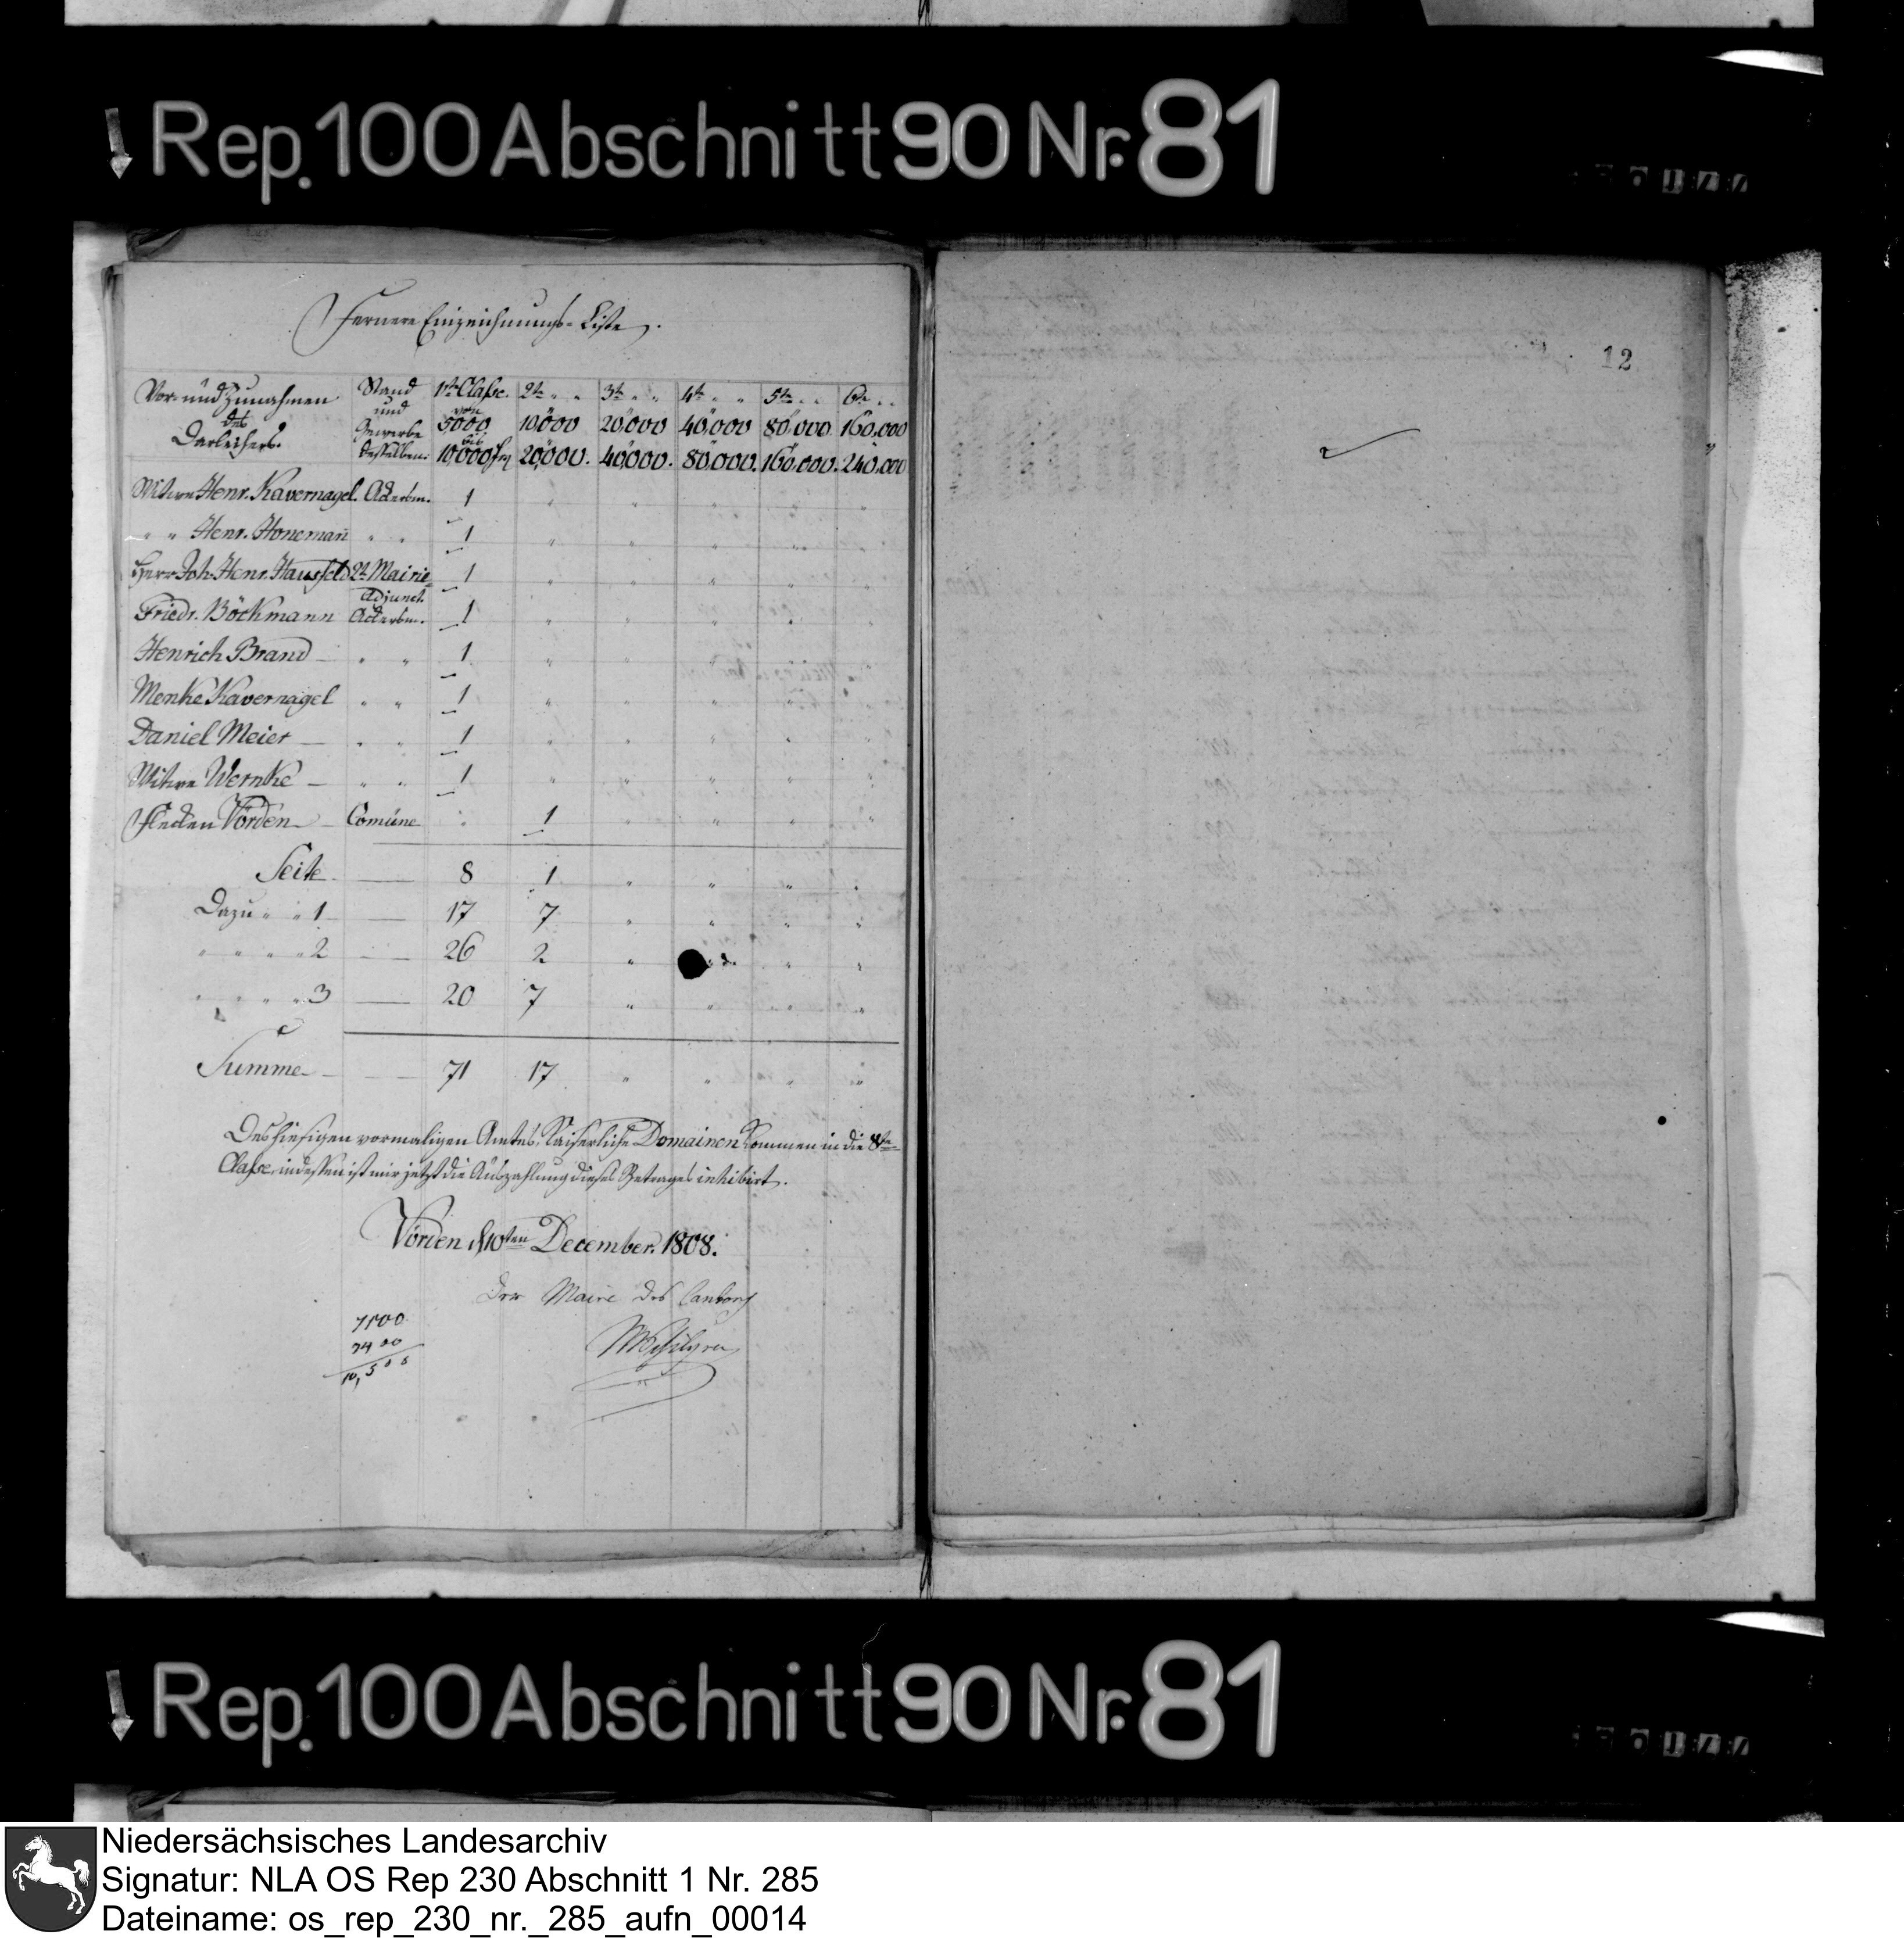 Rep. 100 Abschnitt 90 Nr. 81
Fernere Einzeichnungs-Liste.
12
Vor- und Zunahmen des Darleihers. | Stand und Gewerbe desselben. | 1ste Classe. von 5000 bis 10,000 frs | 2te " " 10,000 20,000. | 3te " " 20,000 40,000. | 4te " " 40,000 80,000. | 5te " " 80,000 160,000. | 6te " " 160,000 240,000
Witwe Henr. Kavernagel. Ackerbm. 1 " " " " "
" " Henr. Honeman̄ " " 1 " " " " "
Herr Joh. Henr. Hausfeld 2te Mairie-Adjunct. 1 " " " " "
Friedr. Böckmann Ackerbm. 1 " " " " "
Henrich Brand " " 1 " " " " "
Menke Kavernagel " " 1 " " " " "
Daniel Meier " " 1 " " " " "
Witwe Wernke " " 1 " " " " "
Flecken Vörden Com̄üne " 1 " " " "
Seite 8 1 " " " "
Dazu " " 1 17 7 " " " "
" " " " 2 26 2 " " " "
" " " " 3 20 7 " " " "
Summe 71 17 " " " "
Des hiesigen vormaligen Amtes Kaiserliche Domainen kommen in die 8te
Classe, indessen ist mir jetzt die Auszahlung dieses Betrages inhibirt.
Vörden d 10ten December. 1808.
Der Maire des Cantons
7100
3400
10,500
Rep. 100 Abschnitt 90 Nr. 81
Niedersächsisches Landesarchiv
Signatur: NLA OS Rep 230 Abschnitt 1 Nr. 285
Dateiname: os_rep_230_nr._285_aufn_00014